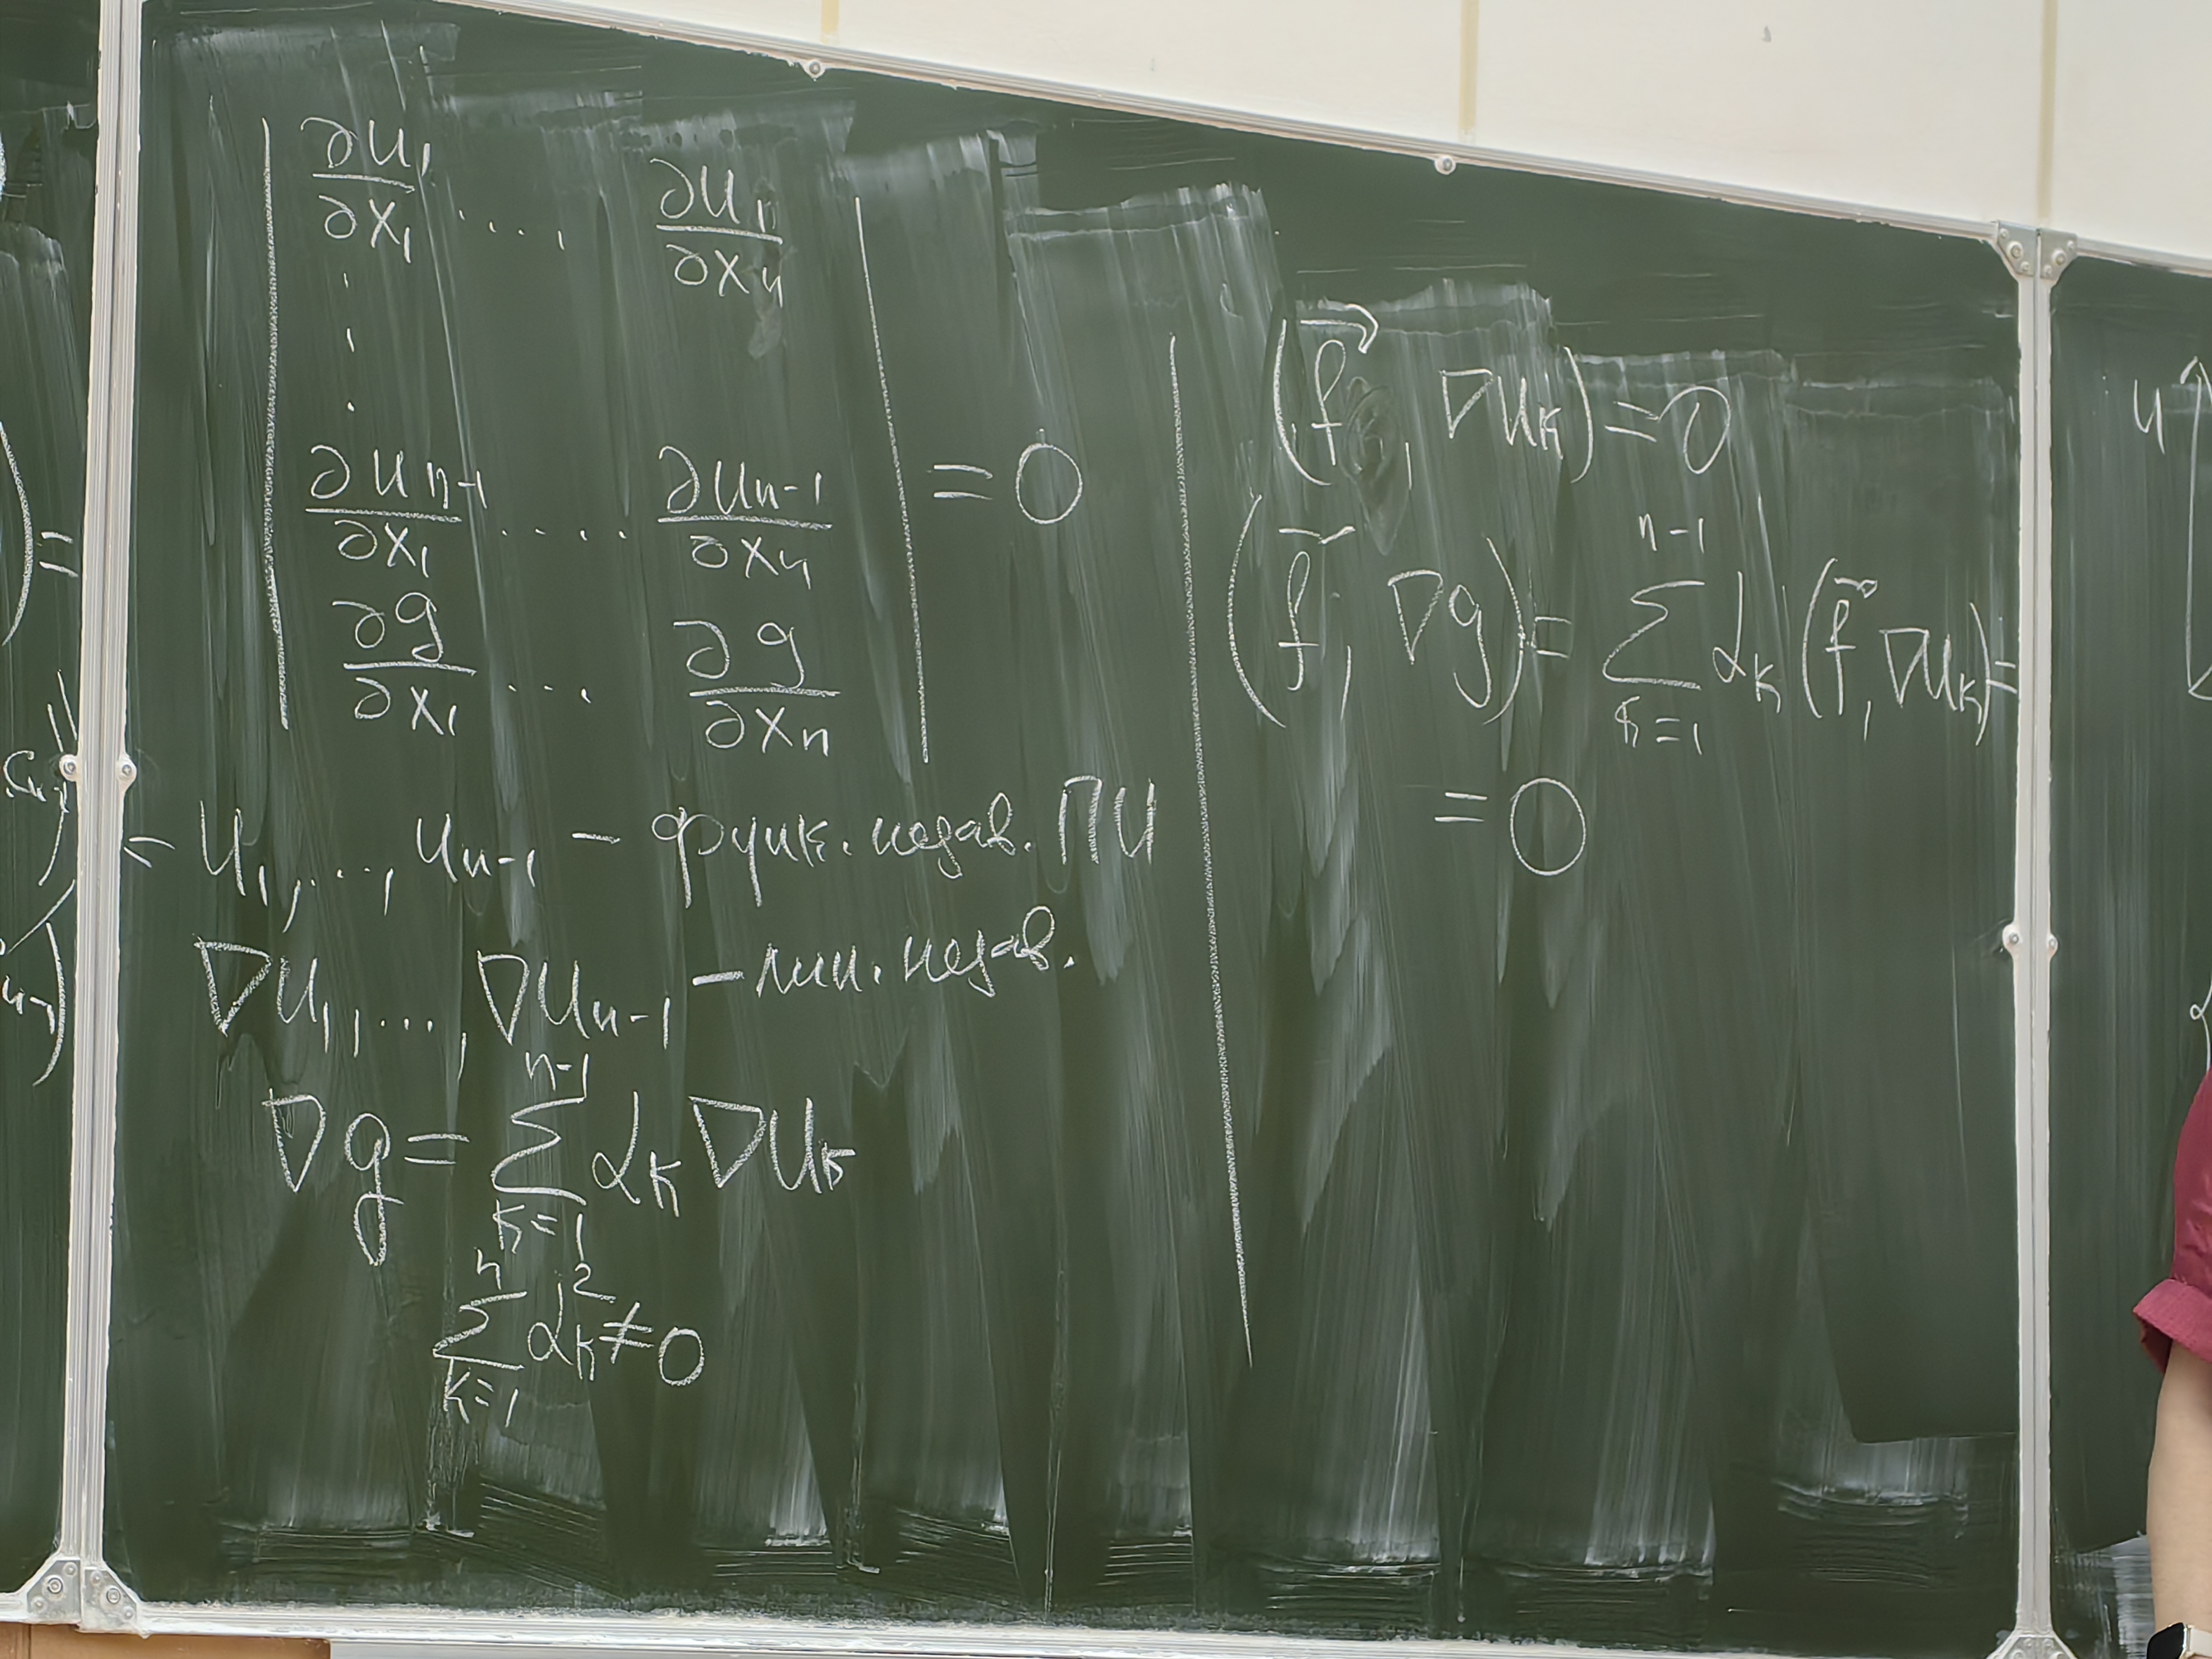 | ∂u₁/∂x₁ ... ∂uₙ/∂xₙ |
⋮
| ∂uₙ₋₁/∂x₁ .... ∂uₙ₋₁/∂xₙ | = 0
| ∂g/∂x₁ ... ∂g/∂xₙ |
= u₁, ..., uₙ₋₁ – функ. незав. ПИ
∇u₁, ..., ∇uₙ₋₁ – лин. незав.
∇g = ∑ₖ₌₁ⁿ⁻¹ αₖ ∇uₖ
∑ₖ₌₁ⁿ αₖ² ≠ 0
(f⃗, ∇uₖ) = 0
(f⃗, ∇g) = ∑ₖ₌₁ⁿ⁻¹ αₖ (f⃗, ∇uₖ) =
= 0
) =
u